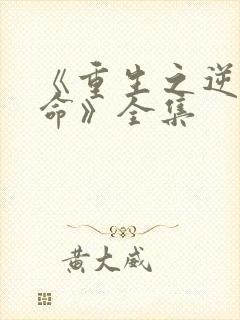 《重生之逆
命》全集
黄大威